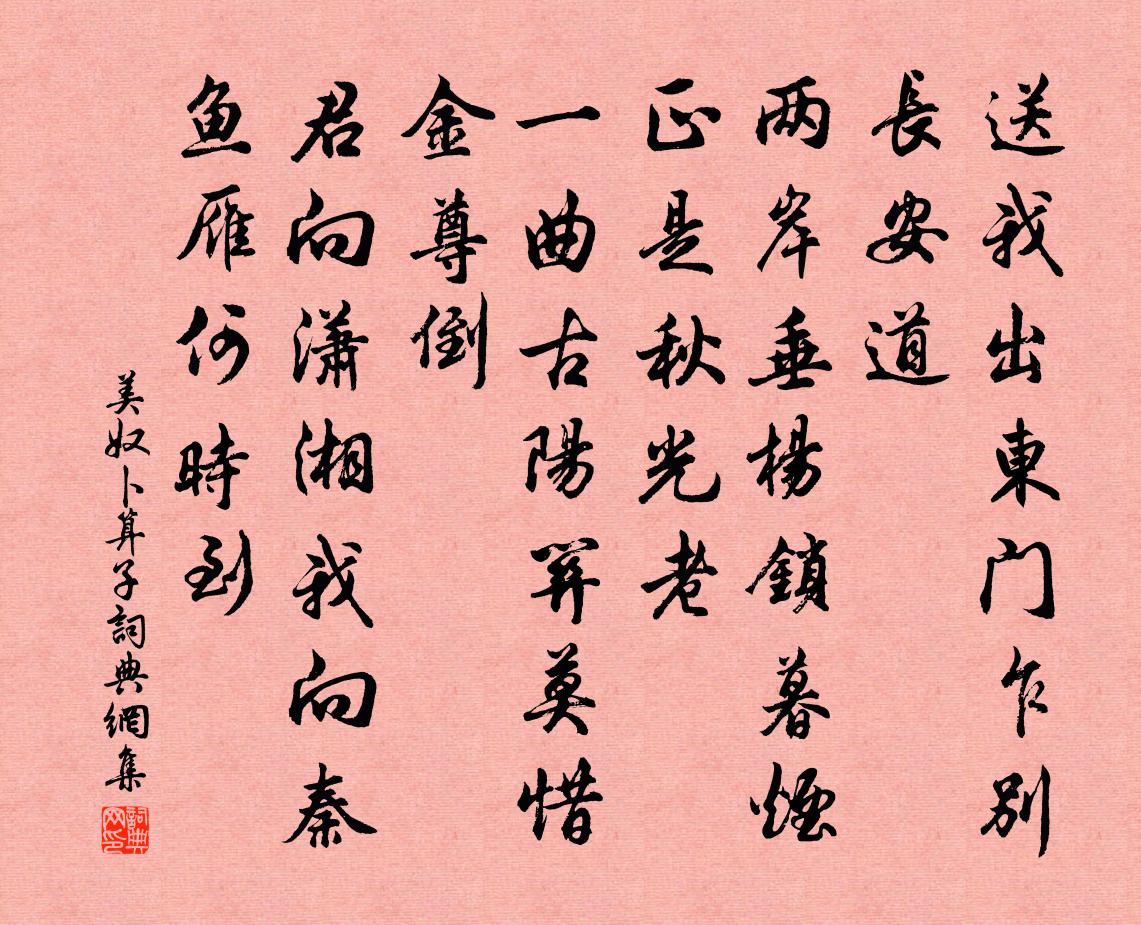 送我出東门乍别
長安道
两岸垂楊鎖暮煙
正是秋光老
一曲古陽関莫惜
金尊倒
君向瀟湘我向秦
鱼雁何時到
美奴卜算子詞典網集
詞典网印